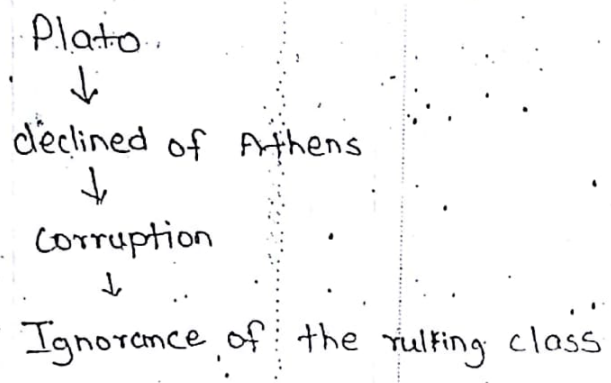 Plato
↓
declined of Athens
↓
Corruption
↓
Ignorance of the rulking class